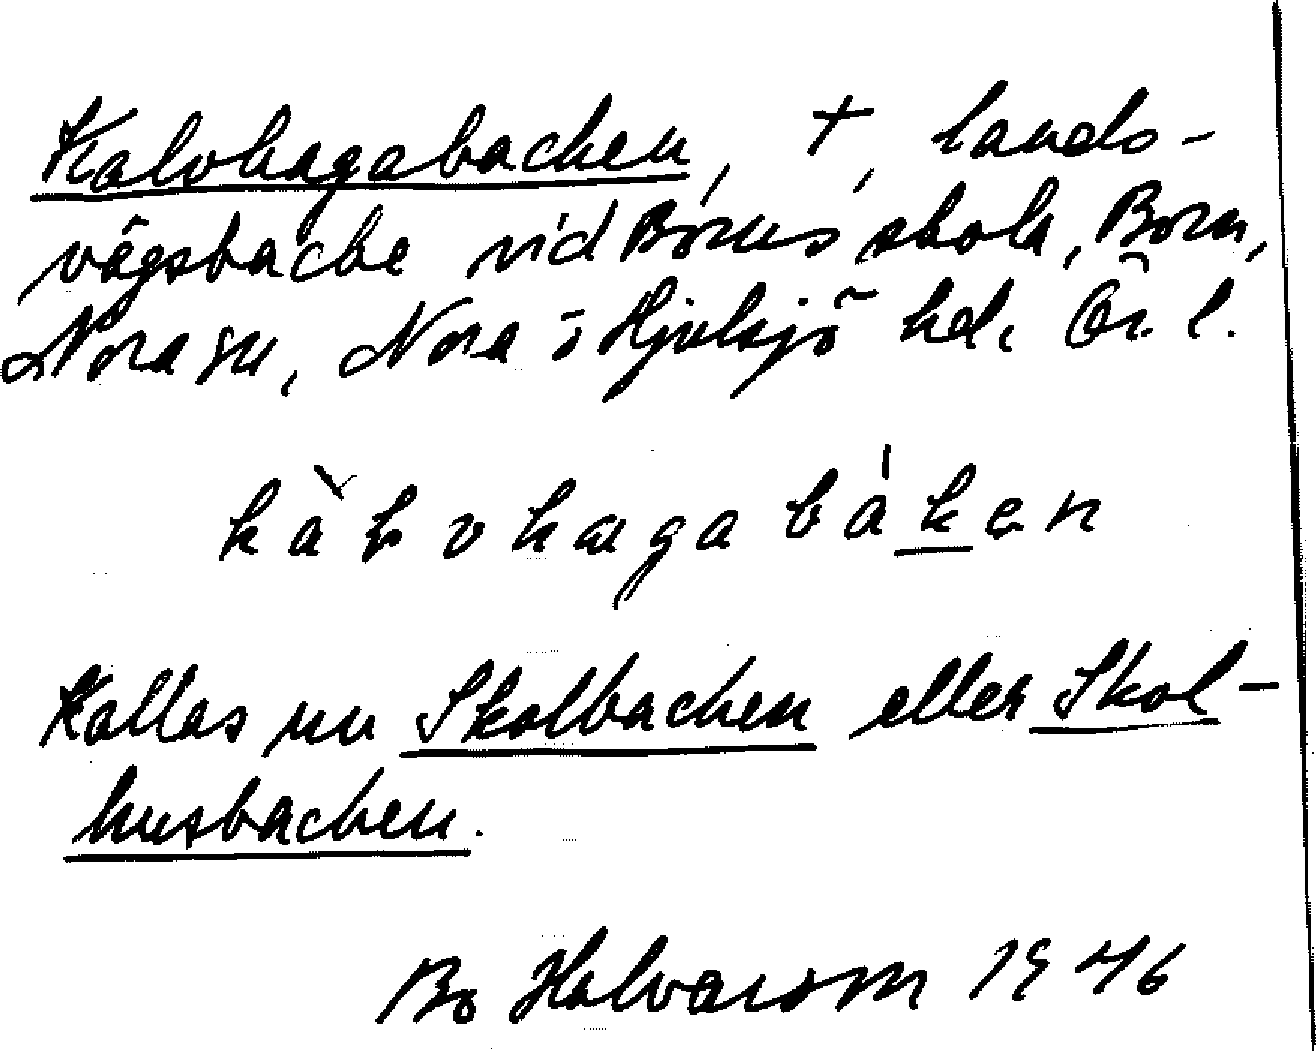 Kalvhagabacken, +, lands-
vägsbacke vid Borns skola, Born,
Nora sn, Nora o Hjulsjö hd. Ör. l.
kàḷvhagabáken
Kallas nu Skolbacken eller Skol-
husbacken.
Bo Halvarson 1946